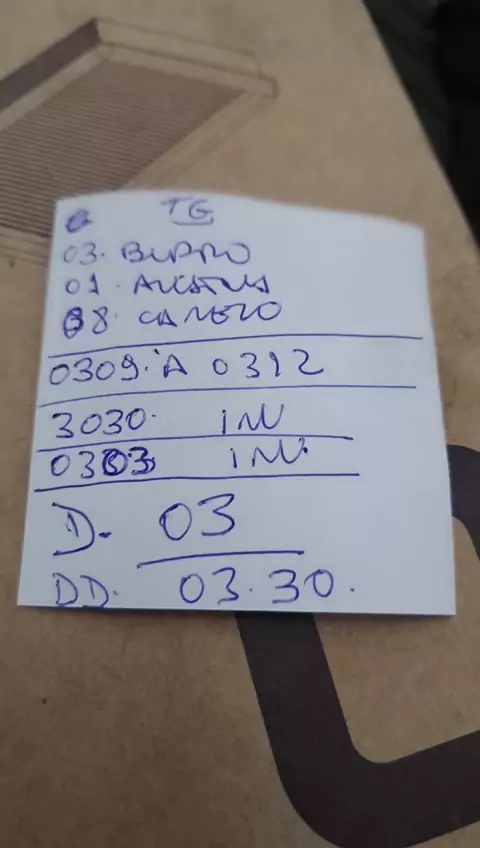 TG
03. BURRO
01.
08. CAMELO
0309. A 0312
3030. INV
0303 INV.
D. 03
DD. 03.30.